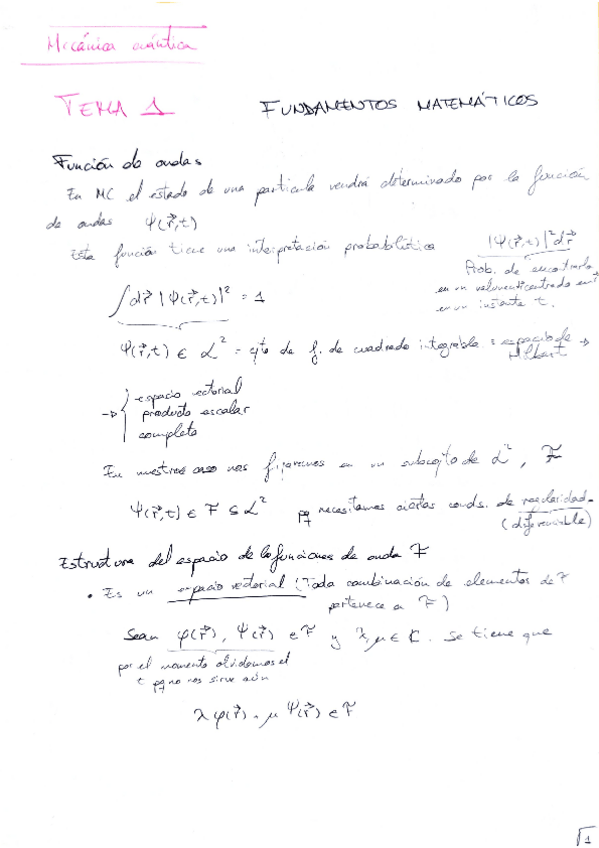 Mecánica cuántica
TEMA 1 FUNDAMENTOS MATEMÁTICOS
Función de ondas
En MC el estado de una partícula vendrá determinado por la función
de ondas Ψ(r⃗,t)
Esta función tiene una interpretación probabilística |Ψ(r⃗,t)|² dr⃗
Prob. de encontrarlo
en un volumen centrado en r⃗
en un instante t.
∫dr⃗ |Ψ(r⃗,t)|² = 1
Ψ(r⃗,t) ∈ L² = cjto de f. de cuadrado integrable : espacio de Hilbert →
→ { espacio vectorial
producto escalar
completo
En nuestro caso nos fijaremos en un subcojto de L², F
Ψ(r⃗,t) ∈ F ⊆ L² pq necesitamos ciertas conds. de regularidad.
(diferenciable)
Estructura del espacio de las funciones de onda F
• Es un espacio vectorial (Toda combinación de elementos de F
pertenece a F)
Sean φ(r⃗), Ψ(r⃗) ∈ F y λ, μ ∈ ℂ. Se tiene que
por el momento olvidamos el
t pq no nos sirve aún
λφ(r⃗) + μΨ(r⃗) ∈ F
1